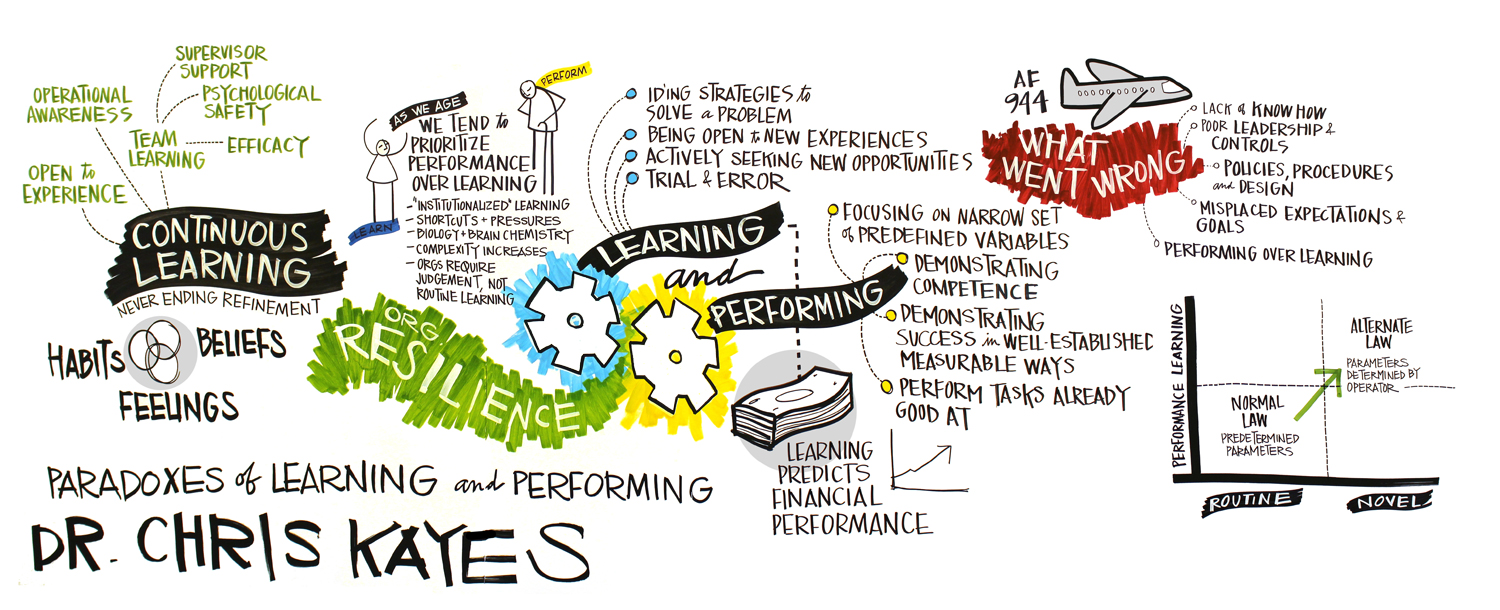 SUPERVISOR
SUPPORT
OPERATIONAL
AWARENESS
PSYCHOLOGICAL
SAFETY
TEAM
LEARNING
EFFICACY
OPEN to
EXPERIENCE
CONTINUOUS
LEARNING
NEVER ENDING REFINEMENT
HABITS
BELIEFS
FEELINGS
PERFORM
LEARN
AS WE AGE
WE TEND to
PRIORITIZE
PERFORMANCE
OVER LEARNING
- "INSTITUTIONALIZED" LEARNING
- SHORTCUTS + PRESSURES
- BIOLOGY + BRAIN CHEMISTRY
- COMPLEXITY INCREASES
- ORGS REQUIRE
JUDGEMENT, NOT
ROUTINE LEARNING
ORG
RESILIENCE
ID'ING STRATEGIES to
SOLVE a PROBLEM
BEING OPEN to NEW EXPERIENCES
ACTIVELY SEEKING NEW OPPORTUNITIES
TRIAL & ERROR
LEARNING
and
PERFORMING
FOCUSING ON NARROW SET
of PREDEFINED VARIABLES
DEMONSTRATING
COMPETENCE
DEMONSTRATING
SUCCESS in WELL-ESTABLISHED
MEASURABLE WAYS
PERFORM TASKS ALREADY
GOOD AT
LEARNING
PREDICTS
FINANCIAL
PERFORMANCE
AF
944
WHAT
WENT WRONG
LACK of KNOW HOW
POOR LEADERSHIP &
CONTROLS
POLICIES, PROCEDURES
and DESIGN
MISPLACED EXPECTATIONS &
GOALS
PERFORMING OVER LEARNING
PERFORMANCE LEARNING
ALTERNATE
LAW
PARAMETERS
DETERMINED BY
OPERATOR
NORMAL
LAW
PREDETERMINED
PARAMETERS
ROUTINE
NOVEL
PARADOXES of LEARNING and PERFORMING
DR. CHRIS KAYES